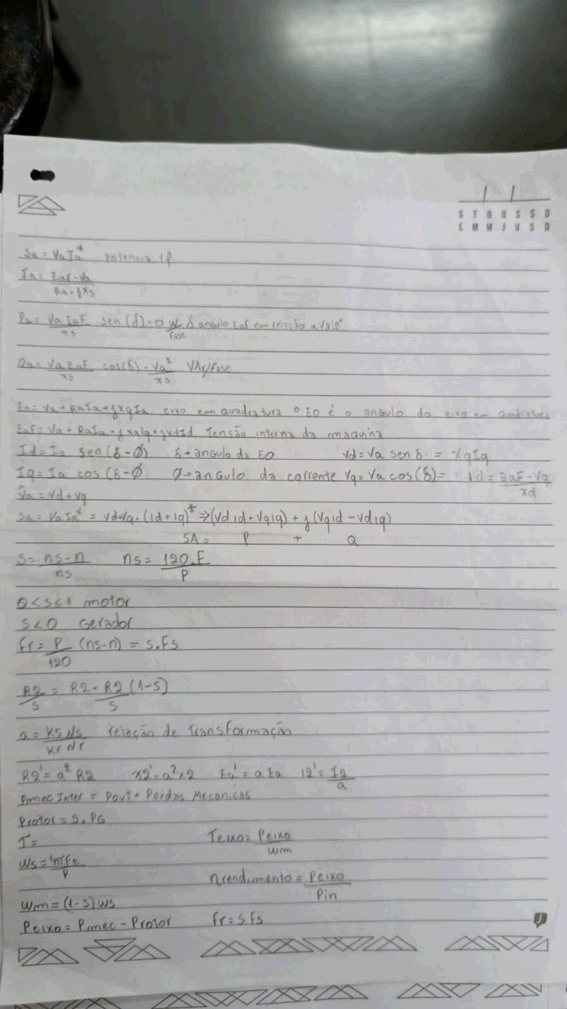 S T Q Q S S D
L M M J V S D
Sa = Va Ia* potencia 1φ
Ia = Eaf - Va / Ra + jxs
Pa = Va Eaf / xs sen(δ) → W/fase δ angulo Eaf em relação a Va/0°
Qa = Va Eaf / xs cos(δ) - Va² / xs VAr/fase
Eo = Va + RaIa + jxqIa eixo em quadratura ° EO é o angulo do eixo em quadratura
Eaf = Va + RaIa + jxqIq + jxdId Tensão interna da maquina
Id = Ia sen(δ-Ø) δ → angulo da EO Vd = Va sen δ = XqIq
IQ = Ia cos(δ-Ø) Ø → angulo da corrente Vq = Va cos(δ) = Id = Eaf - Vq / xd
Va = Vd + Vq
Sa = VaIa* = Vd+Vq · (Id+Iq)* ⇒ (VdId + VqIq) + j(VqId - VdIq)
SA = P + Q
S = ns - n / ns ns = 120.F / P
0 < S ≤ 1 motor
S < 0 Gerador
Fr = P / 120 (ns-n) = s.Fs
R2 / S = R2 + R2 / S (1-S)
a = Ks Ns / Kr Nr relação de Transformação
R2' = a² R2 x2' = a² x2 Ea' = a Ea I2' = I2 / a
Pmec Inter = Pout + Perdas Mecanicas
Protor = S. PG
T = Teixo = Peixo / Wm
Ws = 4πFe / P
η rendimento = Peixo / Pin
Wm = (1-S) Ws
Peixo = Pmec - Protor Fr = S Fs